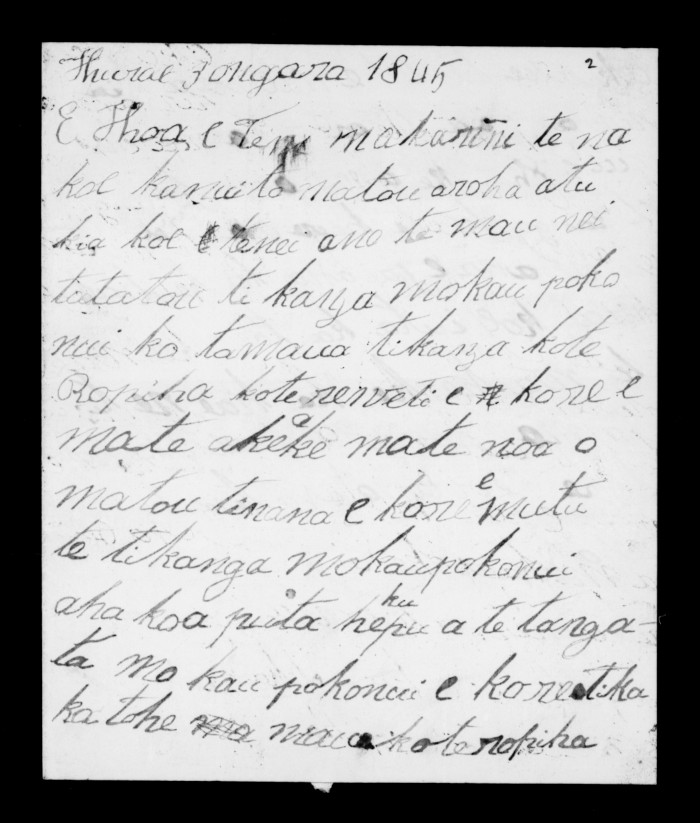 Hurae 3 ongara 1845 2
E Hoa e Tena makarini te na
koe ka nui to matou aroha atu
kia koe e tenei ano te mau nei
tatatou ti kanga mokau poko
nui ko tamaua tikanga kote
Ropiha kote reweti e kore e
mate akeake mate noa o
matou tinana e kore e mutu
te tikanga mokaupokonui
aha koa puta he kupu a te tanga-
ta mo kau pokonui e kore tika
ka tohe maua ko te ropiha